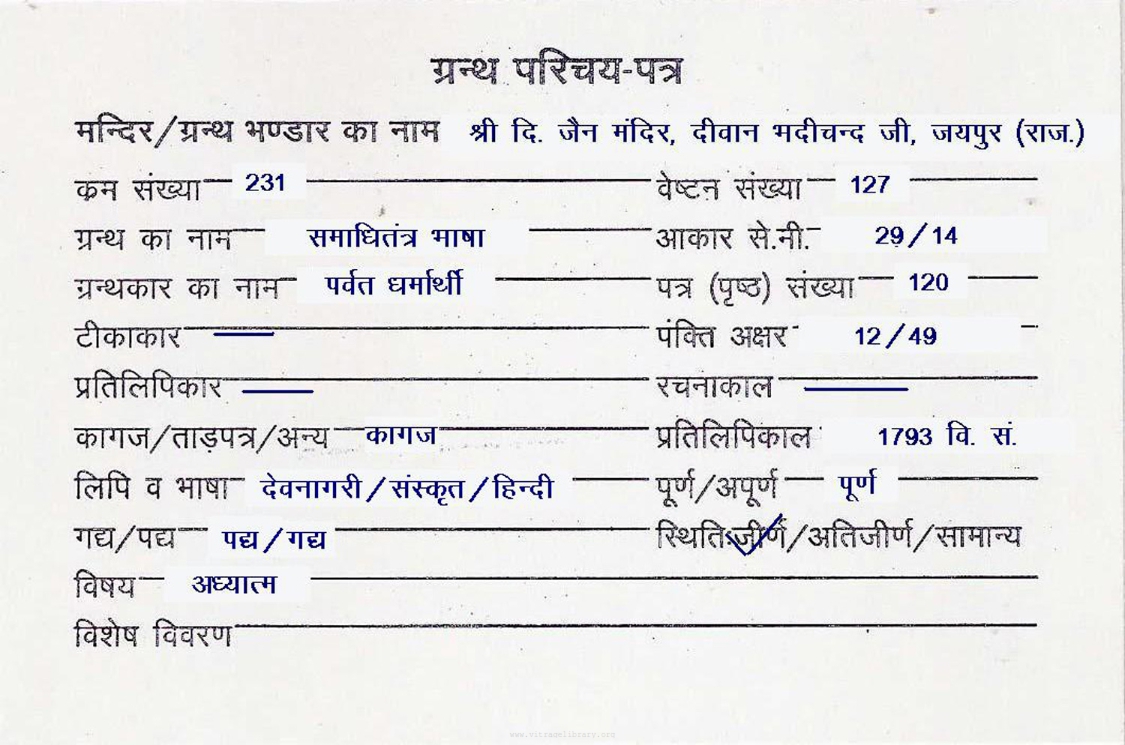 ग्रन्थ परिचय-पत्र
मन्दिर/ग्रन्थ भण्डार का नाम श्री दि. जैन मंदिर, दीवान भदीचन्द जी, जयपुर (राज.)
क्रम संख्या 231 वेष्टन संख्या 127
ग्रन्थ का नाम समाधितंत्र भाषा आकार से.मी. 29/14
ग्रन्थकार का नाम पर्वत धर्मार्थी पत्र (पृष्ठ) संख्या 120
टीकाकार — पंक्ति अक्षर 12/49
प्रतिलिपिकार — रचनाकाल —
कागज/ताड़पत्र/अन्य कागज प्रतिलिपिकाल 1793 वि. सं.
लिपि व भाषा देवनागरी/संस्कृत/हिन्दी पूर्ण/अपूर्ण पूर्ण
गद्य/पद्य पद्य/गद्य स्थिति:जीर्ण/अतिजीर्ण/सामान्य
विषय अध्यात्म
विशेष विवरण